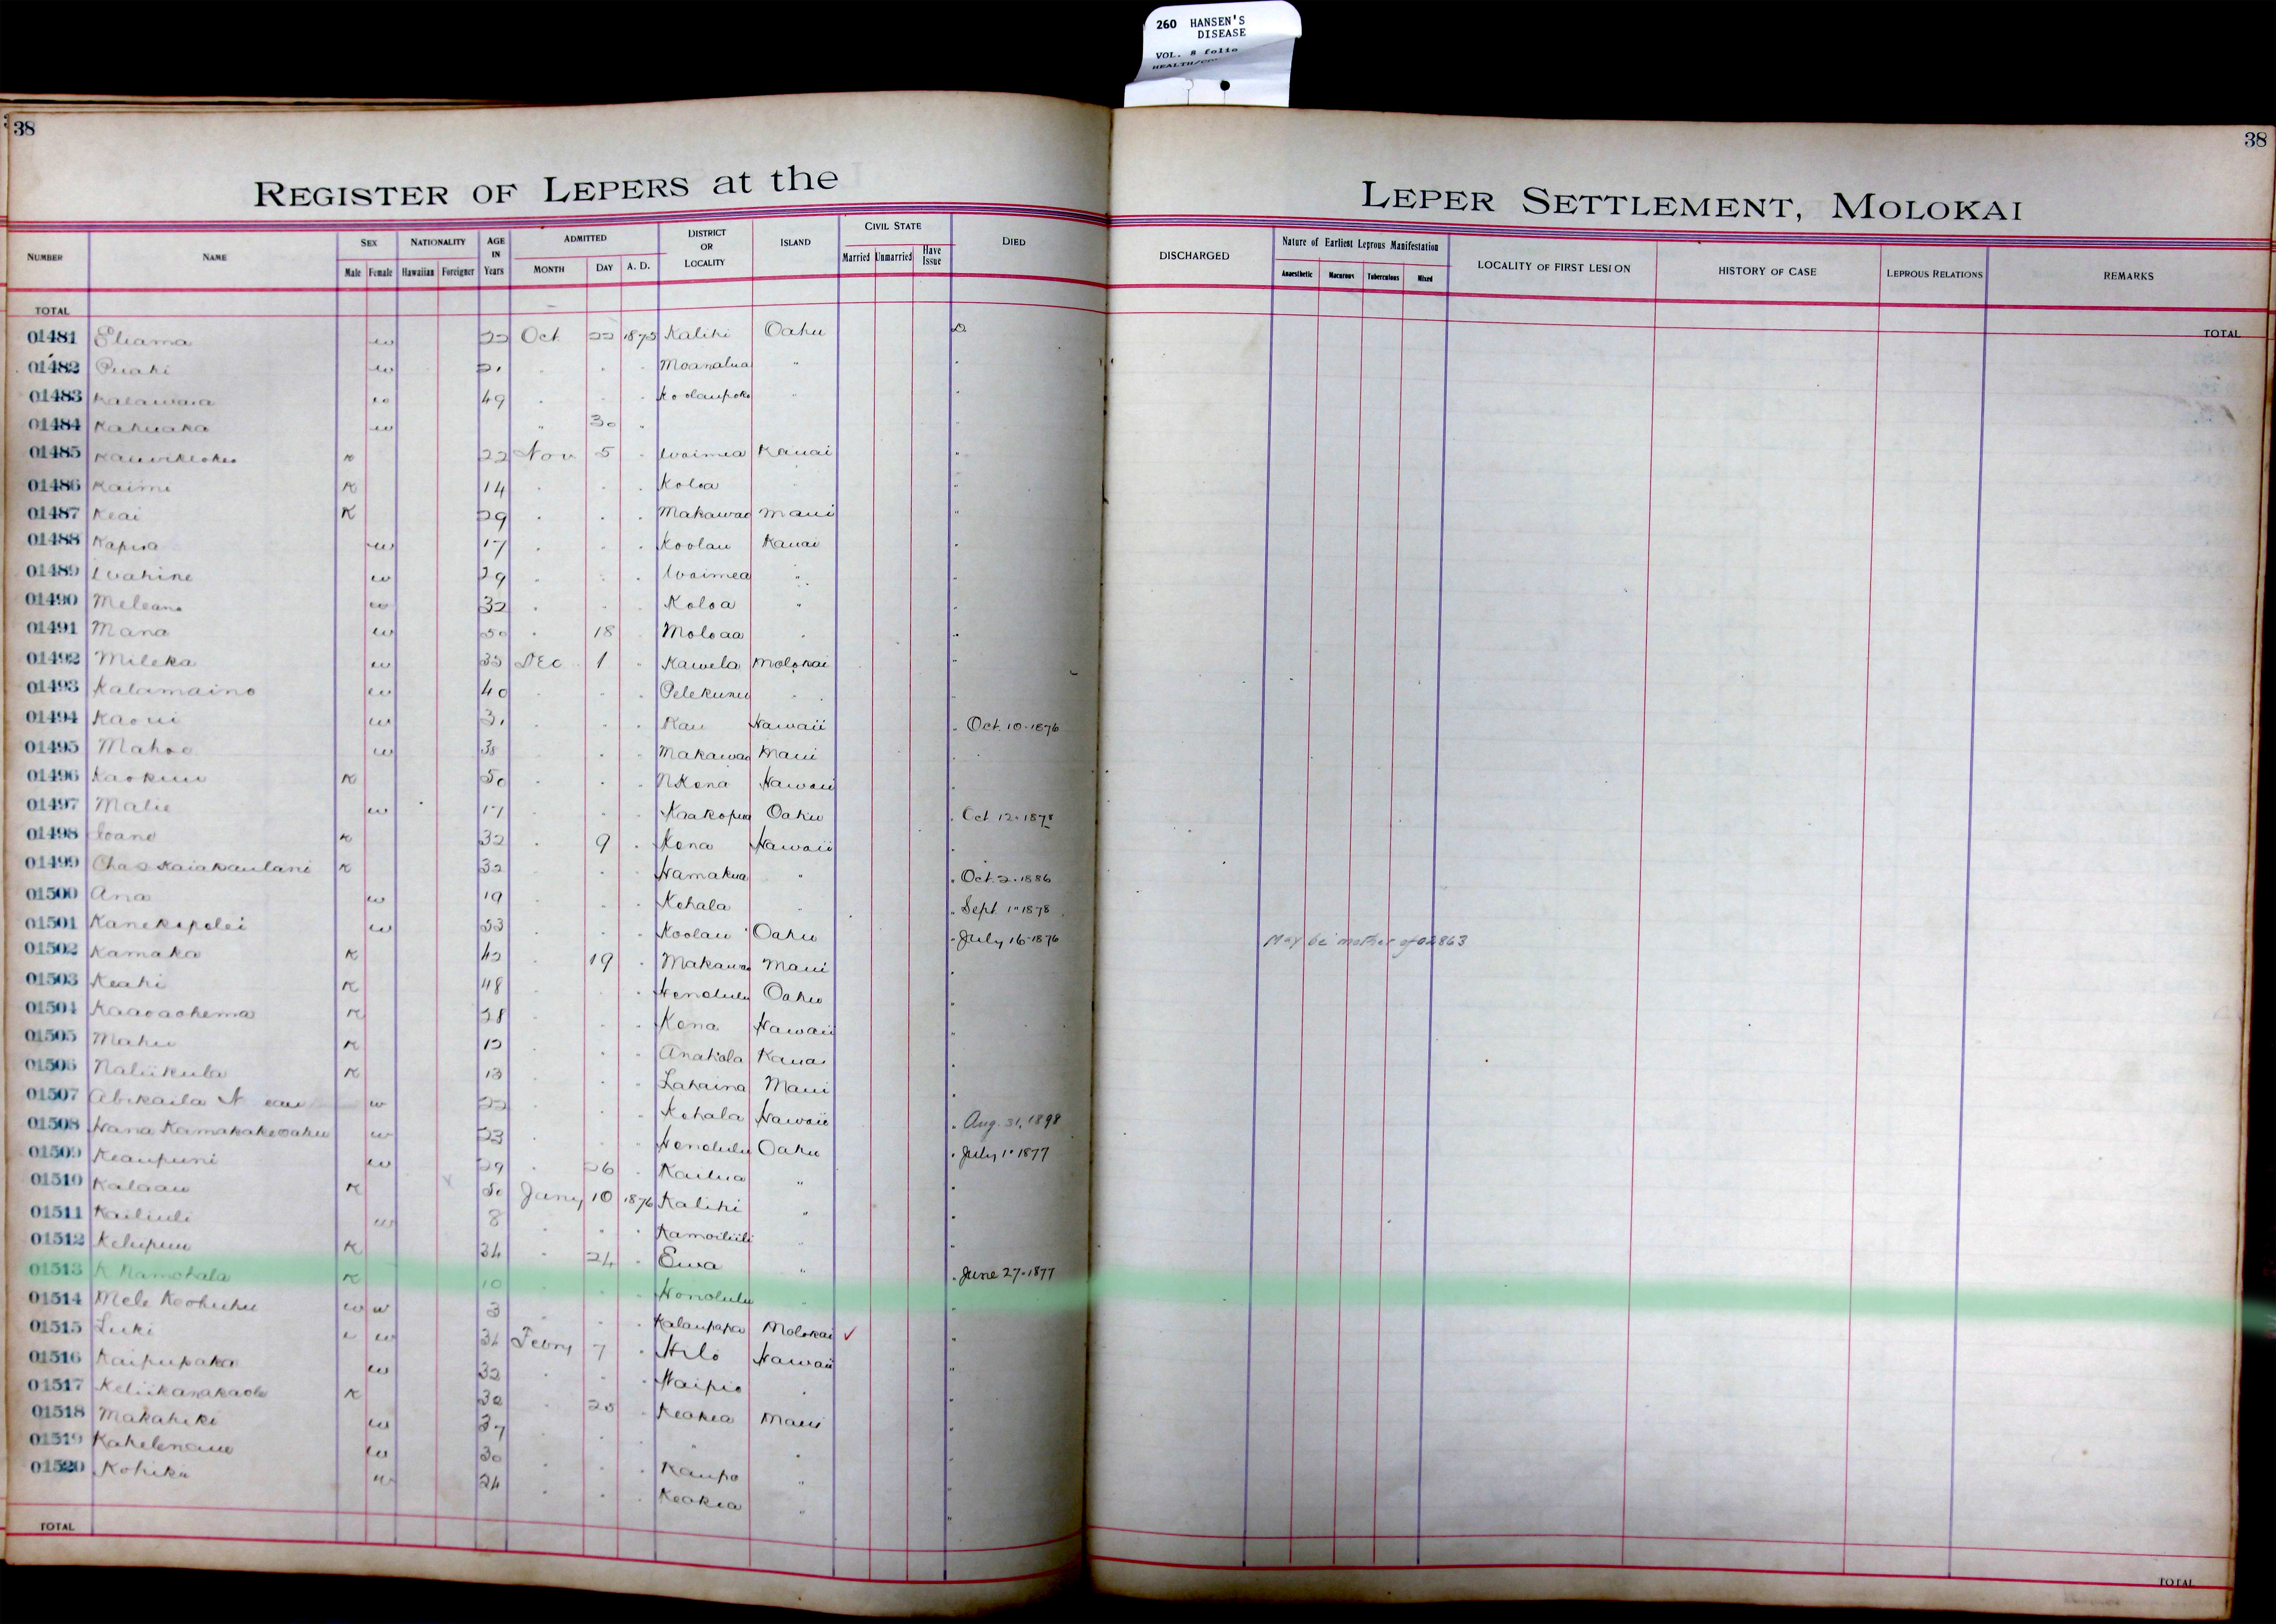 260 HANSEN'S
DISEASE
VOL. 8 folio
38
38
REGISTER OF LEPERS at the
LEPER SETTLEMENT, MOLOKAI
NUMBER NAME SEX Male Female NATIONALITY Hawaiian Foreigner AGE IN Years ADMITTED MONTH DAY A. D. DISTRICT OR LOCALITY ISLAND CIVIL STATE Married Unmarried Have Issue DIED
DISCHARGED Nature of Earliest Leprous Manifestation Anaesthetic Macurous Tuberculous Mixed LOCALITY OF FIRST LESION HISTORY OF CASE LEPROUS RELATIONS REMARKS
TOTAL
TOTAL
01481 Eliama w 22 Oct 22 1875 Kalihi Oahu D
01482 Puahi w 21 " " " Moanalua "
01483 w 49 " " " Koolaupoko "
01484 Kahuaka w " 30 "
01485 K 22 Nov 5 " Waimea Kauai "
01486 Kaimi K 14 " " " Koloa "
01487 Keai K 29 " " " Makawao Maui "
01488 w 17 " " " Koolau Kauai "
01489 w 29 " " " Waimea " "
01490 Meleana w 32 " " " Koloa " "
01491 Mana w 50 " 18 " Moloaa " "
01492 Mileka w 35 Dec 1 " Kawela Molokai "
01493 Kalamaino w 40 " " " Pelekunu " "
01494 Kaoui w 31 " " " Kau Hawaii " Oct. 10-1876
01495 Mahoe w 38 " " " Makawao Maui "
01496 K 50 " " " N Kona Hawaii "
01497 Malie w 17 " " " Oahu " Oct 12-1878
01498 Ioane K 32 " 9 " Kona Hawaii "
01499 Chas Kaiakaulani K 32 " " " Hamakua " " Oct. 2-1886
01500 Ana w 19 " " " Kohala " " Sept 1-1878
01501 Kanekapolei w 53 " " " Koolau Oahu " July 16-1876 May be mother of 02863
01502 Kamaka K 42 " 19 " Makawao Maui "
01503 Keahi K 48 " " " Honolulu Oahu "
01504 K 28 " " " Kona Hawaii "
01505 Mahu K 12 " " " Anahola Kauai "
01506 Naliikula K 13 " " " Lahaina Maui "
01507 Abikaila N w 22 " " " Kohala Hawaii " Aug. 31, 1898
01508 Hana Kamakakeoahu w 23 " " " Honolulu Oahu " July 1-1877
01509 Keaupuni w 29 " 26 " Kailua " "
01510 Kalaau K 50 Jany 10 1876 Kalihi " "
01511 Kailiuli w 8 " " " Kamoiliili " "
01512 K 34 " 24 " Ewa " " June 27-1877
01513 K Namohala K 10 " " " Honolulu " "
01514 Mele Keohuhu w w 3 " " " Kalaupapa Molokai ✓ "
01515 Luki w 34 Febry 7 " Hilo Hawaii "
01516 Kaipupaka w 32 " " " Waipio " "
01517 Keliikanakaole K 30 " 25 " Keokea Maui "
01518 Makahiki w 37 " " " " " "
01519 Kahelenaue w 30 " " " Kaupo " "
01520 Kohiku w 24 " " " Keokea " "
TOTAL
TOTAL